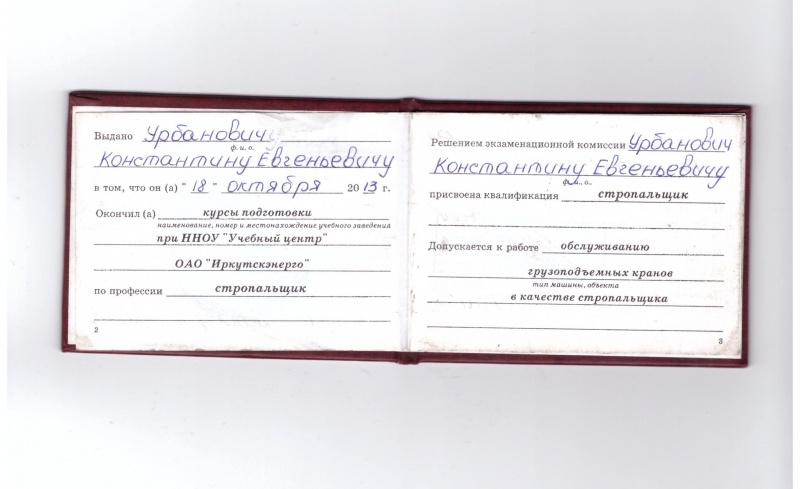 Выдано Урбановичу
ф. и. о.
Константину Евгеньевичу
в том, что он (а) "18" октября 2013 г.
Окончил (а) курсы подготовки
наименование, номер и местонахождение учебного заведения
при ННОУ "Учебный центр"
ОАО "Иркутскэнерго"
по профессии стропальщик
2
Решением экзаменационной комиссии Урбанович
Константину Евгеньевичу
ф. и. о.
присвоена квалификация стропальщик
Допускается к работе обслуживанию
грузоподъемных кранов
тип машины, объекта
в качестве стропальщика
3